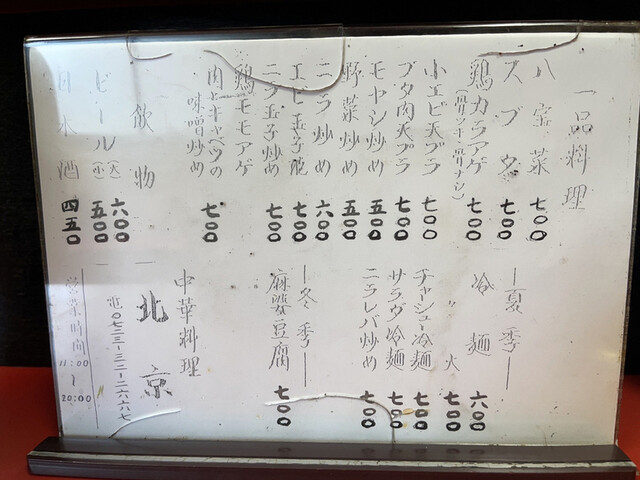 一品料理
八宝菜 七〇〇
スブタ 七〇〇
鶏カラアゲ 七〇〇
(骨ツキ・骨ナシ)
小エビ天プラ 七〇〇
ブタ肉天プラ 七〇〇
モヤシ炒め 五五〇
野菜炒め 五五〇
ニラ炒め 六〇〇
エビ玉子 七〇〇
ニラ玉子炒め 七〇〇
鶏モモアゲ
肉とキャベツの
味噌炒め 七〇〇
飲物
ビール(大) 六〇〇
(小) 五〇〇
日本酒 四五〇
―夏季―
冷麺 六〇〇
〃 大 七〇〇
チャーシュー冷麺 七〇〇
サラダ冷麺 七〇〇
ニラレバ炒め 七〇〇
―冬季―
麻婆豆腐 七〇〇
中華料理
北京
電〇七二三-三二-二六六七
営業時間
11:00
〜
20:00